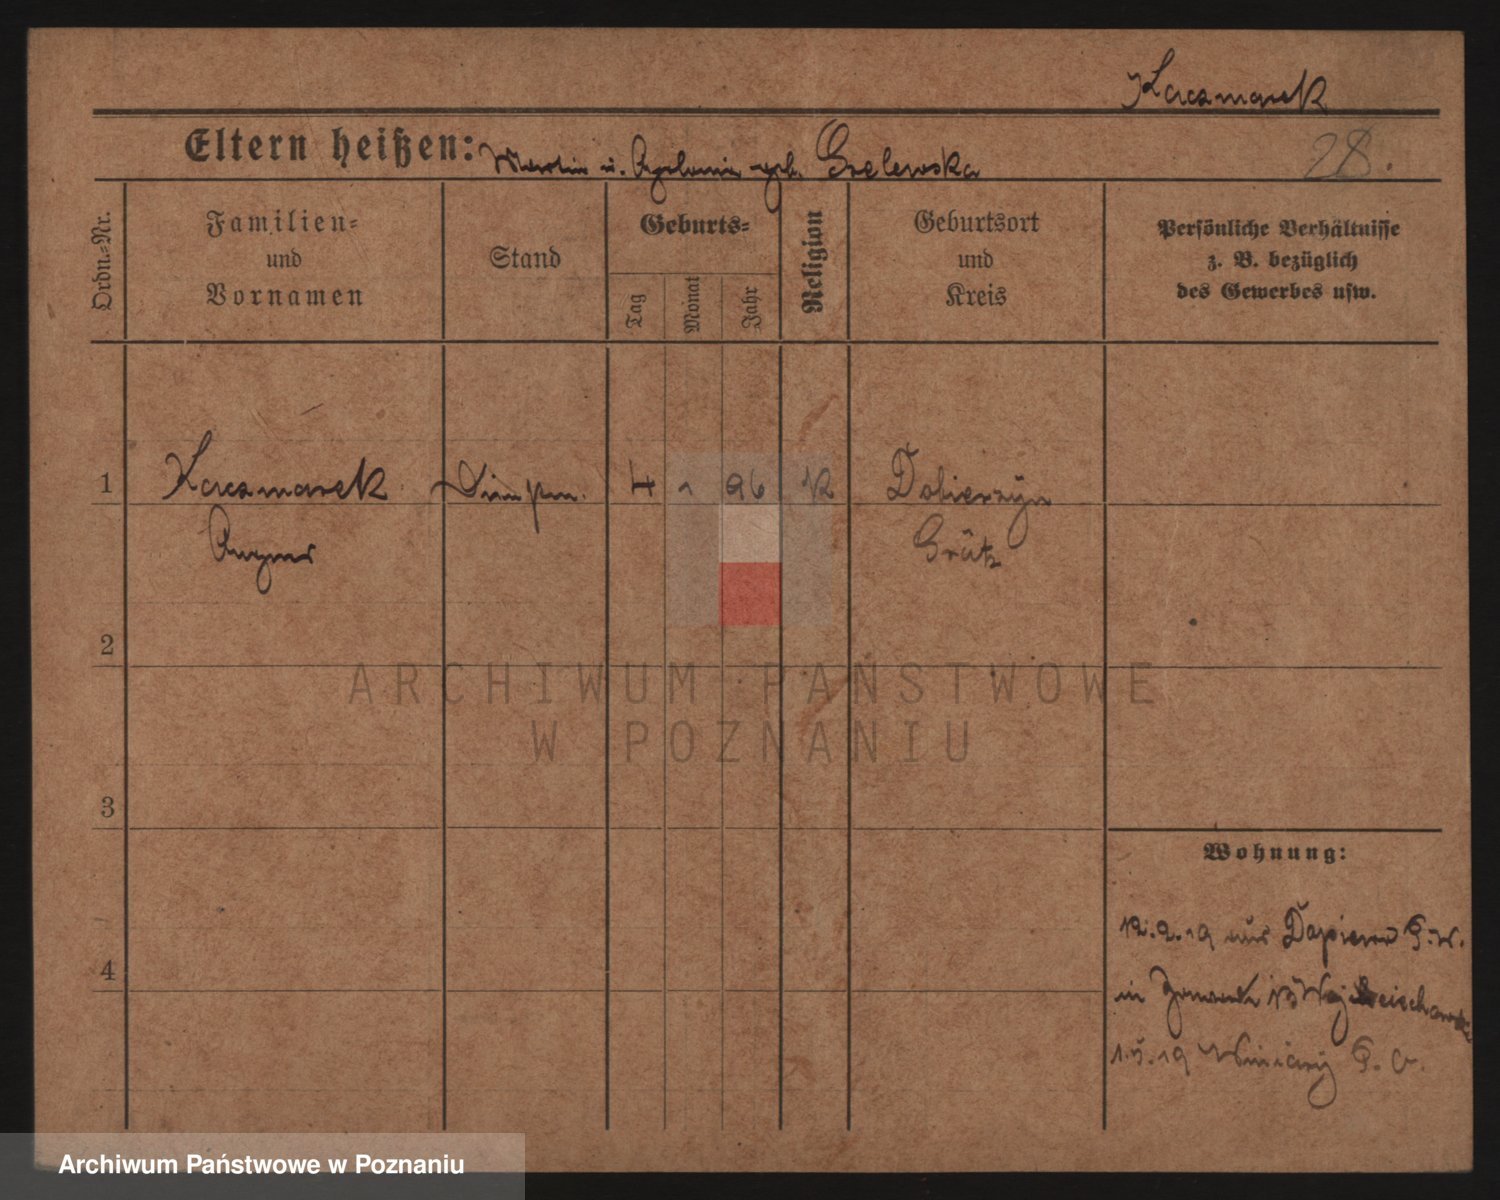 Kaczmarek
Eltern heißen: Martin u. Apolonia geb. Gzelewska
28.
Ordn.=Nr.
Familien=
und
Vornamen
Stand
Geburts=
Tag
Monat
Jahr
Religion
Geburtsort
und
Kreis
Persönliche Verhältnisse
z. B. bezüglich
des Gewerbes usw.
1 Kaczmarek 4 1 96 K Dobierzyn
Grätz
2
3
4
Wohnung:
12.2.19 aus
in
1.5.19 Winiary
ARCHIWUM PAŃSTWOWE
W POZNANIU
Archiwum Państwowe w Poznaniu